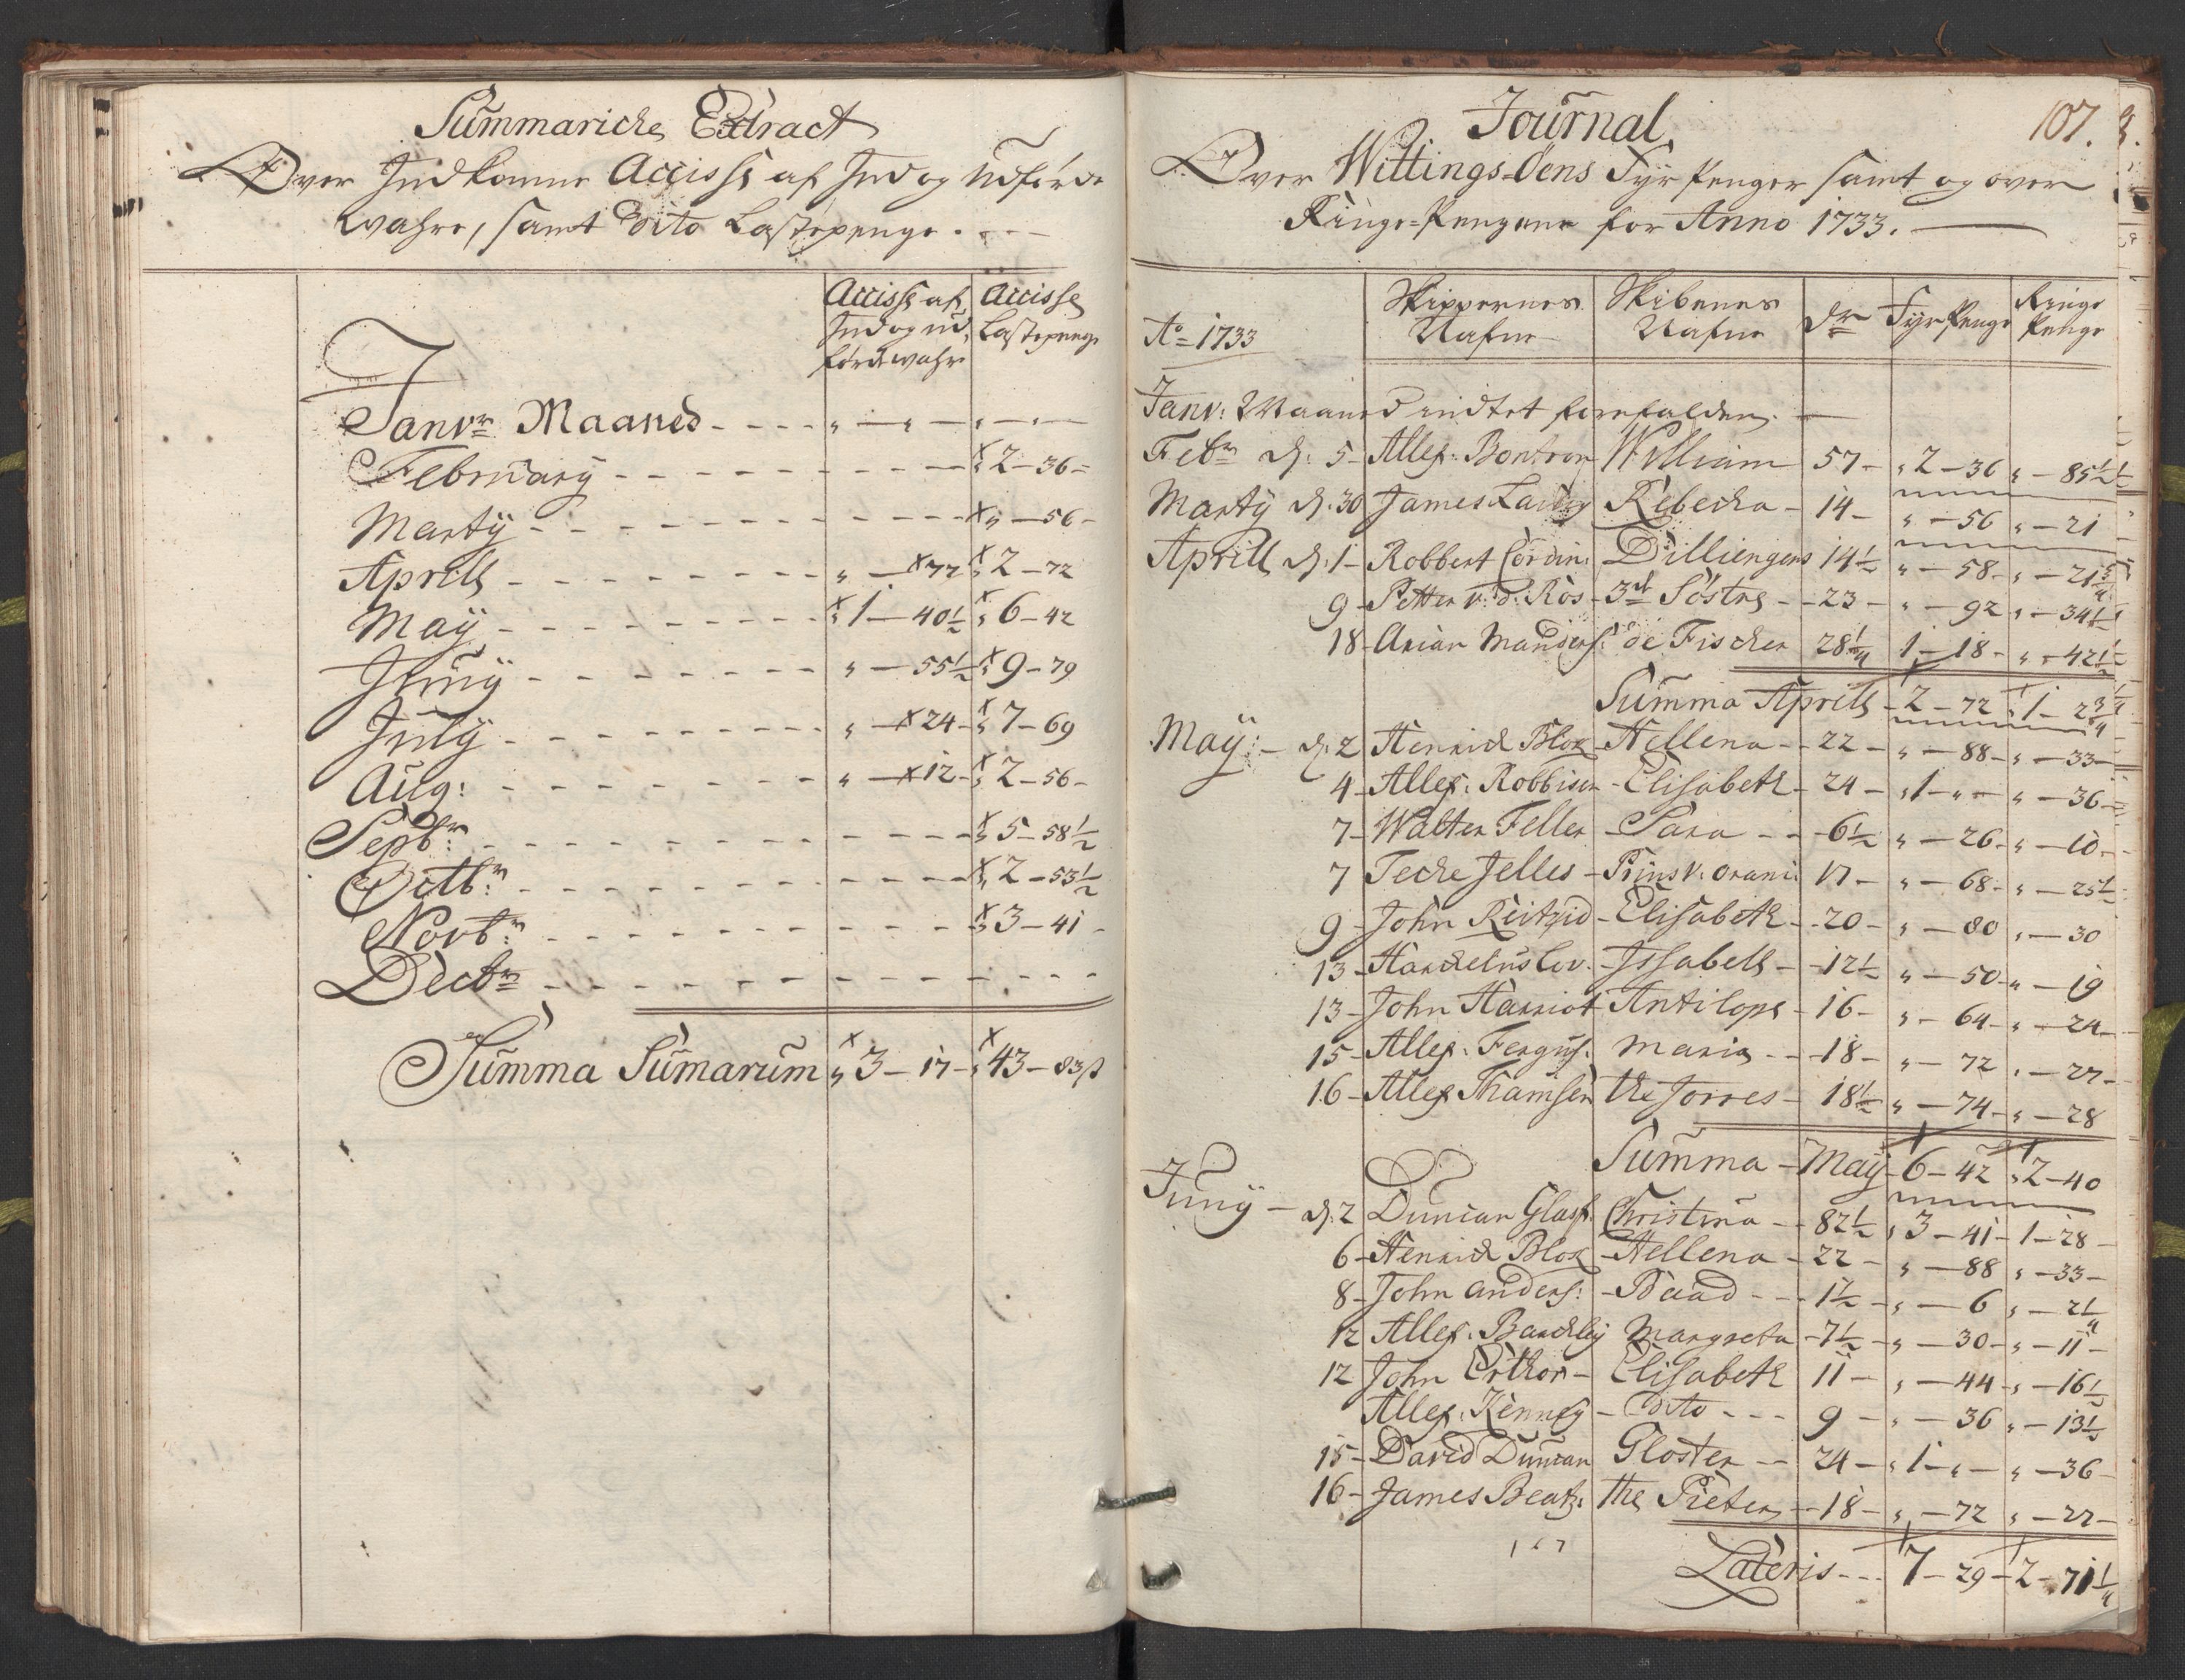 Summariche Extract
Over Indkomne Accisse af Ind og Udförde
wahre, samt Dito Lastepenge.
Accisse af Ind og ud förde wahre
Accisse Lastepenge
Janv:r Maaned - - - - " — " — " — " —
February - - - " 2 — 36 =
Marty - - - " " — 56 -
Aprill - - - " — 77 " 2 — 72
May - - - " 1 — 40½ " 6 — 42
Juny - - - " — 55½ " 9 — 79
July - - - " — 24 - " 7 — 69
Aug: - - - " — 12 - " 2 — 56 -
Sepb:r - - - " 5 — 58½
Octb:r - - - " 2 — 53½
Novb:r - - - " 3 — 41 -
Decb:r - - -
Summa Sumarum " 3 — 17 — " 43 — 83 ß
107.
Journal
Over Wittings-Öens Fyr Penger samt og over
Ringe-Pengene for Anno 1733.
A:o 1733
Skippernes Nafne
Skibenes Nafne
Fyr Penge
Ringe Penge
Janv: Maaned indtet forefalden.
Feb:r d: 5 - Allex: Bontron William 57 - " 2 — 36 " — 85½
Marty d: 30 James Rebecka - 14 - " — 56 " — 21
Aprill d: 1 - Robbert Cordin: Dilliengens 14½ " — 58 - " — 21¾
9 - Petter v: d: Ros - 3de Söstre - 23 - " — 92 " — 34½
18 - Arian Manders: de Fischer 28¼ 1 — 18 - " — 42½
Summa Aprill - 2 — 72 " 1 — 2¾
May: - d: 2 Henrich Blok - Hellena - 22 - " — 88 - " — 33 -
4 - Allex: Robbisen - Elisabeth - 24 - " 1 — " — " — 36 -
7 - Walter Feller - Sara - 6½ " — 26 - " — 10 -
7 Tecke Jelles - Prins v: Orani: 17 - " — 68 - " — 25½
9 - John Reitzid - Elisabeth - 20 - " — 80 " — 30
13 - Jssabell - 12½ " — 50 - " — 19
13 - John Harriot Antilope - 16 - " — 64 - " — 24 -
15 - Allex: Fergus: Maria - 18 - " — 72 " — 27 -
16 - Allex Thamsen the Jorres - 18½ " — 74 - " — 28
Summa - May - 6 — 42 " 2 — 40
Juny - d: 2 Duncan Glasf. Christina - 82½ " 3 — 41 - 1 — 28 -
6 - Henrich Blok - Hellena - 22 - " — 88 " — 33 -
8 - John Anders: - Baad - 1½ - " — 6 " — 2¼
12 Allex: Barckley Margreta - 7½ - " — 30 - " — 11 -
12 John Erthor - Elisabeth 11 - " — 44 - " — 16½
Allex: Kenney - Dito - - - 9 - " — 36 " — 13½
15 - David Duncan Gloster - 24 - " 1 — " — " — 36 -
16 - James Beatz: the Pieter - 18 - " — 72 " — 27 -
Lateris - - - 7 — 29 — 2 — 71¼